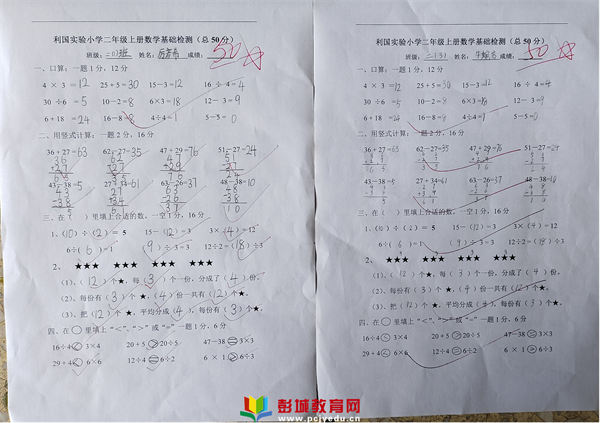 利国实验小学二年级上册数学基础检测（总50分）
班级：二(1)班 姓名： 成绩：50
一、口算：一题1分，12分
4 × 3 =12 25＋5=30 15－3=12 16 ÷ 4=4
30 ÷6 =5 10－2=8 6×3=18 12－ 3=9
6＋18 =24 16－8=8 4÷4=1 5－5=0
二、用竖式计算：一题2分，16分
36＋27=63 62－27=35 47＋29=76 51－27=24
43－38=5 27＋34=61 63－26=37 48－38=10
三、在（ ）里填上合适的数。一空1分，16分
1、（10）÷（2）= 5 15－（12）=3 3×（4）=12
6÷（6）=1 （9）÷3=3 12÷2=（18）÷3
2、 ★★★ ★★★ ★★★ ★★★
(1)、（12）个★，每（3）个一份，分成了（4）份。
(2)、每份有（3）个★，（4）份一共有（12）个★。
(3)、把（12）个★，平均分成（4），每份有（3）个★。
四、在○里填上“＜”、“＞”或“=”一题1分，6分
16÷4＜3×4 20＋5＞20÷5 47－38=3×3
29＋4＜6×6 12÷6＜12÷2 6 × 1＞6÷3
利国实验小学二年级上册数学基础检测（总50分）
班级：二(3) 姓名： 成绩：50
一、口算：一题1分，12分
4 × 3 =12 25＋5=30 15－3=12 16 ÷ 4=4
30 ÷6=5 10－2=8 6×3=18 12－ 3=9
6＋18 =24 16－8=8 4÷4=1 5－5=0
二、用竖式计算：一题2分，16分
36＋27=63 62－27=35 47＋29=76 51－27=24
43－38=5 27＋34=61 63－26=37 48－38=10
三、在（ ）里填上合适的数。一空1分，16分
1、（10）÷（2）= 5 15－（12）=3 3×（4）=12
6÷（6）=1 （9）÷3=3 12÷2=（18）÷3
2、 ★★★ ★★★ ★★★ ★★★
(1)、（12）个★，每（3）个一份，分成了（4）份。
(2)、每份有（3）个★，（4）份一共有（12）个★。
(3)、把（12）个★，平均分成（4），每份有（3）个★。
四、在○里填上“＜”、“＞”或“=”一题1分，6分
16÷4＜3×4 20＋5＞20÷5 47－38=3×3
29＋4＜6×6 12÷6＜12÷2 6 × 1＞6÷3
彭城教育网
www.pcjyedu.cn